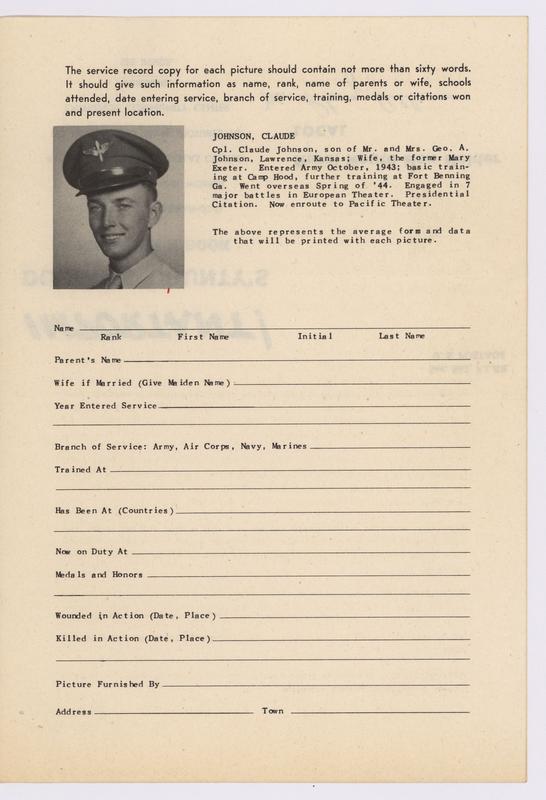 The service record copy for each picture should contain not more than sixty words.
It should give such information as name, rank, name of parents or wife, schools
attended, date entering service, branch of service, training, medals or citations won
and present location.
JOHNSON, CLAUDE
Cpl. Claude Johnson, son of Mr. and Mrs. Geo. A.
Johnson, Lawrence, Kansas; Wife, the former Mary
Exeter. Entered Army October, 1943; basic train-
ing at Camp Hood, further training at Fort Benning
Ga. Went overseas Spring of '44. Engaged in 7
major battles in European Theater. Presidential
Citation. Now enroute to Pacific Theater.
The above represents the average form and data
that will be printed with each picture.
Name
Rank First Name Initial Last Name
Parent's Name
Wife if Married (Give Maiden Name)
Year Entered Service
Branch of Service: Army, Air Corps, Navy, Marines
Trained At
Has Been At (Countries)
Now on Duty At
Medals and Honors
Wounded in Action (Date, Place)
Killed in Action (Date, Place)
Picture Furnished By
Address Town